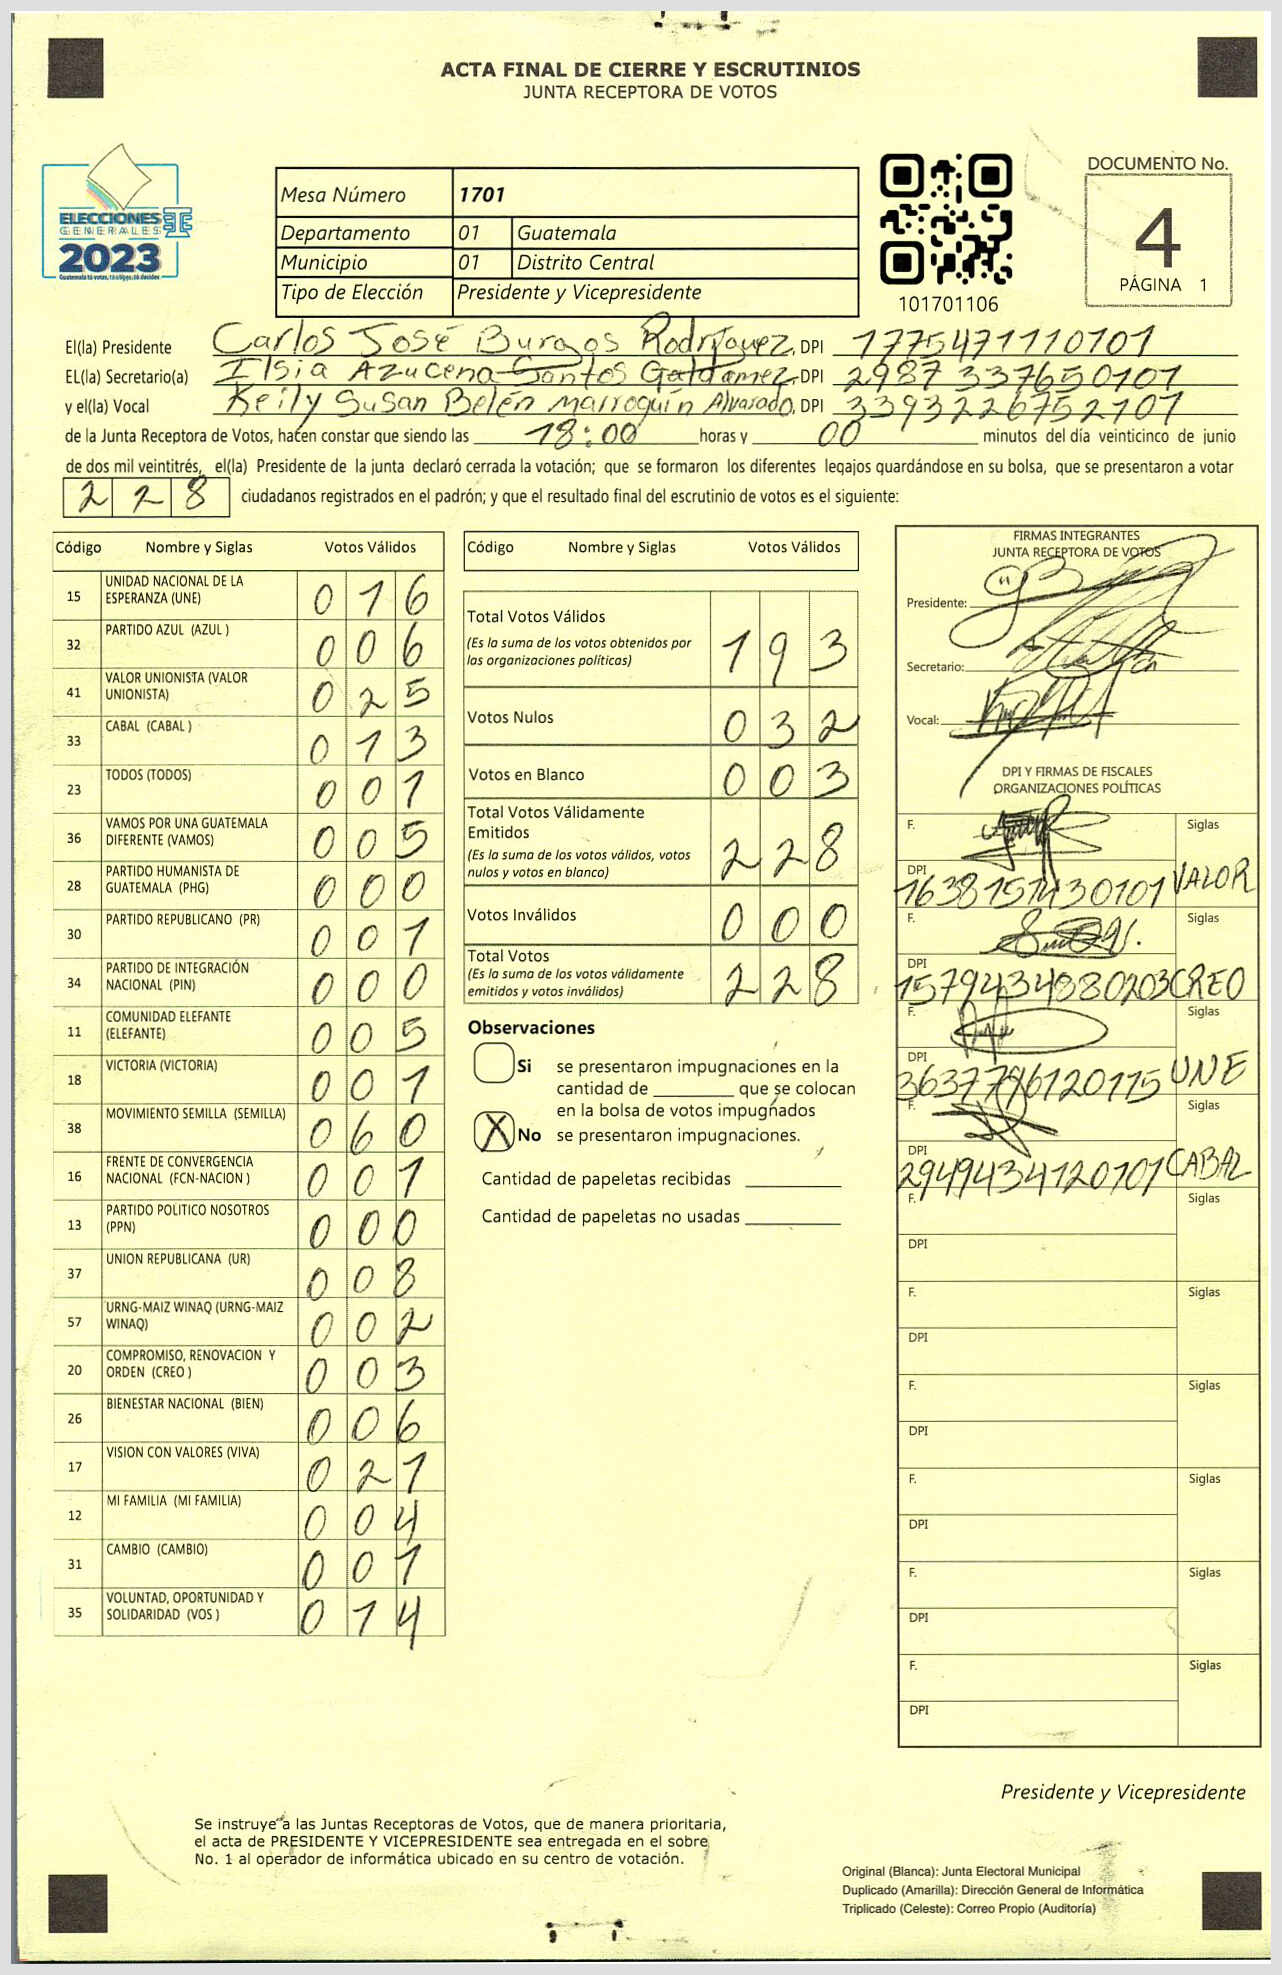 ACTA FINAL DE CIERRE Y ESCRUTINIOS
JUNTA RECEPTORA DE VOTOS
ELECCIONES
GENERALES
2023
Mesa Número 1701
Departamento 01 Guatemala
Municipio 01 Distrito Central
Tipo de Elección Presidente y Vicepresidente
101701106
DOCUMENTO No.
4
PÁGINA 1
El(la) Presidente Carlos José Burgos Rodríguez, DPI 1775471110101
EL(la) Secretario(a) Ilsia Azucena Santos Galdamez, DPI 2987 337650101
y el(la) Vocal Keily Susan Belén Marroquín Alvarado, DPI 3393226752101
de la Junta Receptora de Votos, hacen constar que siendo las 18:00 horas y 00 minutos del día veinticinco de junio
de dos mil veintitrés, el(la) Presidente de la junta declaró cerrada la votación; que se formaron los diferentes legajos quardándose en su bolsa, que se presentaron a votar
228 ciudadanos registrados en el padrón; y que el resultado final del escrutinio de votos es el siguiente:
Código Nombre y Siglas Votos Válidos
15 UNIDAD NACIONAL DE LA ESPERANZA (UNE) 016
32 PARTIDO AZUL (AZUL ) 006
41 VALOR UNIONISTA (VALOR UNIONISTA) 025
33 CABAL (CABAL ) 013
23 TODOS (TODOS) 001
36 VAMOS POR UNA GUATEMALA DIFERENTE (VAMOS) 005
28 PARTIDO HUMANISTA DE GUATEMALA (PHG) 000
30 PARTIDO REPUBLICANO (PR) 001
34 PARTIDO DE INTEGRACIÓN NACIONAL (PIN) 000
11 COMUNIDAD ELEFANTE (ELEFANTE) 005
18 VICTORIA (VICTORIA) 001
38 MOVIMIENTO SEMILLA (SEMILLA) 060
16 FRENTE DE CONVERGENCIA NACIONAL (FCN-NACION ) 001
13 PARTIDO POLITICO NOSOTROS (PPN) 000
37 UNION REPUBLICANA (UR) 008
57 URNG-MAIZ WINAQ (URNG-MAIZ WINAQ) 002
20 COMPROMISO, RENOVACION Y ORDEN (CREO ) 003
26 BIENESTAR NACIONAL (BIEN) 006
17 VISION CON VALORES (VIVA) 021
12 MI FAMILIA (MI FAMILIA) 004
31 CAMBIO (CAMBIO) 001
35 VOLUNTAD, OPORTUNIDAD Y SOLIDARIDAD (VOS ) 014
Código Nombre y Siglas Votos Válidos
Total Votos Válidos 193
(Es la suma de los votos obtenidos por
las organizaciones políticas)
Votos Nulos 032
Votos en Blanco 003
Total Votos Válidamente
Emitidos 228
(Es la suma de los votos válidos, votos
nulos y votos en blanco)
Votos Inválidos 000
Total Votos 228
(Es la suma de los votos válidamente
emitidos y votos inválidos)
Observaciones
Si se presentaron impugnaciones en la
cantidad de ________ que se colocan
en la bolsa de votos impugnados
X No se presentaron impugnaciones.
Cantidad de papeletas recibidas
Cantidad de papeletas no usadas
FIRMAS INTEGRANTES
JUNTA RECEPTORA DE VOTOS
Presidente:
Secretario:
Vocal:
DPI Y FIRMAS DE FISCALES
ORGANIZACIONES POLÍTICAS
F. Siglas
DPI 1638151430101 VALOR
F. Siglas
DPI 1579434880203 CREO
F. Siglas
DPI 3637796120115 UNE
F. Siglas
DPI 2949434120101 CABAL
F. Siglas
DPI
F. Siglas
DPI
F. Siglas
DPI
F. Siglas
DPI
F. Siglas
DPI
F. Siglas
DPI
Presidente y Vicepresidente
Se instruye a las Juntas Receptoras de Votos, que de manera prioritaria,
el acta de PRESIDENTE Y VICEPRESIDENTE sea entregada en el sobre
No. 1 al operador de informática ubicado en su centro de votación.
Original (Blanca): Junta Electoral Municipal
Duplicado (Amarilla): Dirección General de Informática
Triplicado (Celeste): Correo Propio (Auditoría)